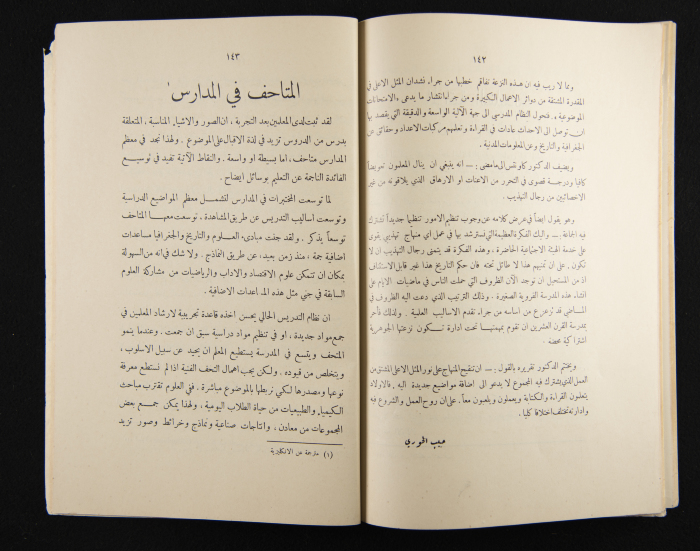 ١٤٢
ومما لا ريب فيه ان هذه النزعة تفاقم خطبها من جراء نشدان المثل الاعلى في
المقدرة المشتقة من دوائر الاعمال الكبيرة ومن جراء انتشار ما يدعى «الامتحانات
الموضوعية». فتحول النظام المدرسي الى جهة الآلية الواسعة والدقيقة التي يقصد بها
ان توصل الى الاحداث عادات في القراءة وتعلمهم مركبات الاعداد وحقائق عن
الجغرافية والتاريخ وعن المعلومات المدنية .
ويضيف الدكتور كاونتس الى ما مضى : — انه ينبغي ان ينال المعلمون تعويضاً
كافيا ودرجة قصوى في التحرر من الاعنات او الارهاق الذي يلاقونه من غير
الاخصائيين من رجال التهذيب .
وهو يقول ايضاً في عرض كلامه عن وجوب تنظيم الامور تنظيما جديداً تشترك
فيه الجماعة : — واليك الفكرة العظيمة التي نسترشد بها في عمل اي منهاج تهذيبي يقوى
على خدمة الهيئة الاجتماعية الحاضرة . وهذه الفكرة قد يتمنى رجال التهذيب ان لا
تكون . على ان تمنيهم هذا لا طائل تحته فان حكم التاريخ هذا غير قابل الاستئناف
اذ من المستحيل ان نوجد الآن الظروف التي حملت الناس في ماضيات الايام على
انشاء هذه المدرسة القروية الصغيرة . وذلك الترتيب الذي دعت اليه الظروف في
الماضي قد تزعزع من اساسه من جراء تقدم الاساليب العلمية . ولذلك تأخر
بمدرسة القرن العشرين ان تقوم بمهمتها تحت ادارة تكون نزعتها الجوهرية
اشتراكية محضة .
ويختم الدكتور تقريره بالقول : — ان تنقيح المنهاج على نور المثل الاعلى المشتق من
العمل الذي يشترك فيه المجموع لا يدعو الى اضافة مواضيع جديدة اليه . فالاولاد
يتعلمون القراءة والكتابة ويعملون ويلعبون معاً . على ان روح العمل والشروع فيه
وادارته تختلف اختلافا كليا .
حبيب الخوري
١٤٣
المتاحف في المدارس¹
لقد ثبت لدى المعلمين بعد التجربة ، ان الصور والاشياء المناسبة ، المتعلقة
بدرس من الدروس تزيد في لذة الاقبال على الموضوع . ولهذا نجد في معظم
المدارس متاحف ، اما بسيطة او واسعة . والنقاط الآتية تفيد في توسيع
الفائدة الناجمة عن التعليم بوسائل ايضاح .
لما توسعت المختبرات في المدارس لتشمل معظم المواضيع الدراسية
وتوسعت اساليب التدريس عن طريق المشاهدة ، توسعت معها المتاحف
توسعاً يذكر . ولقد جنت مبادىء العلوم والتاريخ والجغرافيا مساعدات
اضافية جمة ، منذ زمن بعيد ، عن طريق النماذج . ولا شك في انه من السهولة
بمكان ان تتمكن علوم الاقتصاد والآداب والرياضيات من مشاركة العلوم
السابقة في جني مثل هذه المساعدات الاضافية .
ان نظام التدريس الحالي يحسن اخذه قاعدة تجريبية لارشاد المعلمين في
جمع مواد جديدة ، او في تنظيم مواد دراسية سبق ان جمعت . وعندما ينمو
المتحف ويتسع في المدرسة يستطيع المعلم ان يحيد عن سبيل الاسلوب ،
ويتخلص من قيوده . ولكن يجب اهمال التحف الفنية اذا لم نستطع معرفة
نوعها ومصدرها لكي نربطها بالموضوع مباشرة . ففي العلوم تقترب مباحث
الكيمياء والطبيعيات من حياة الطلاب اليومية . ولهذا يمكن جمع بعض
المجموعات من معادن ، وانتاجات صناعية ونماذج وخرائط وصور تزيد
(١) مترجمة عن الانكليزية